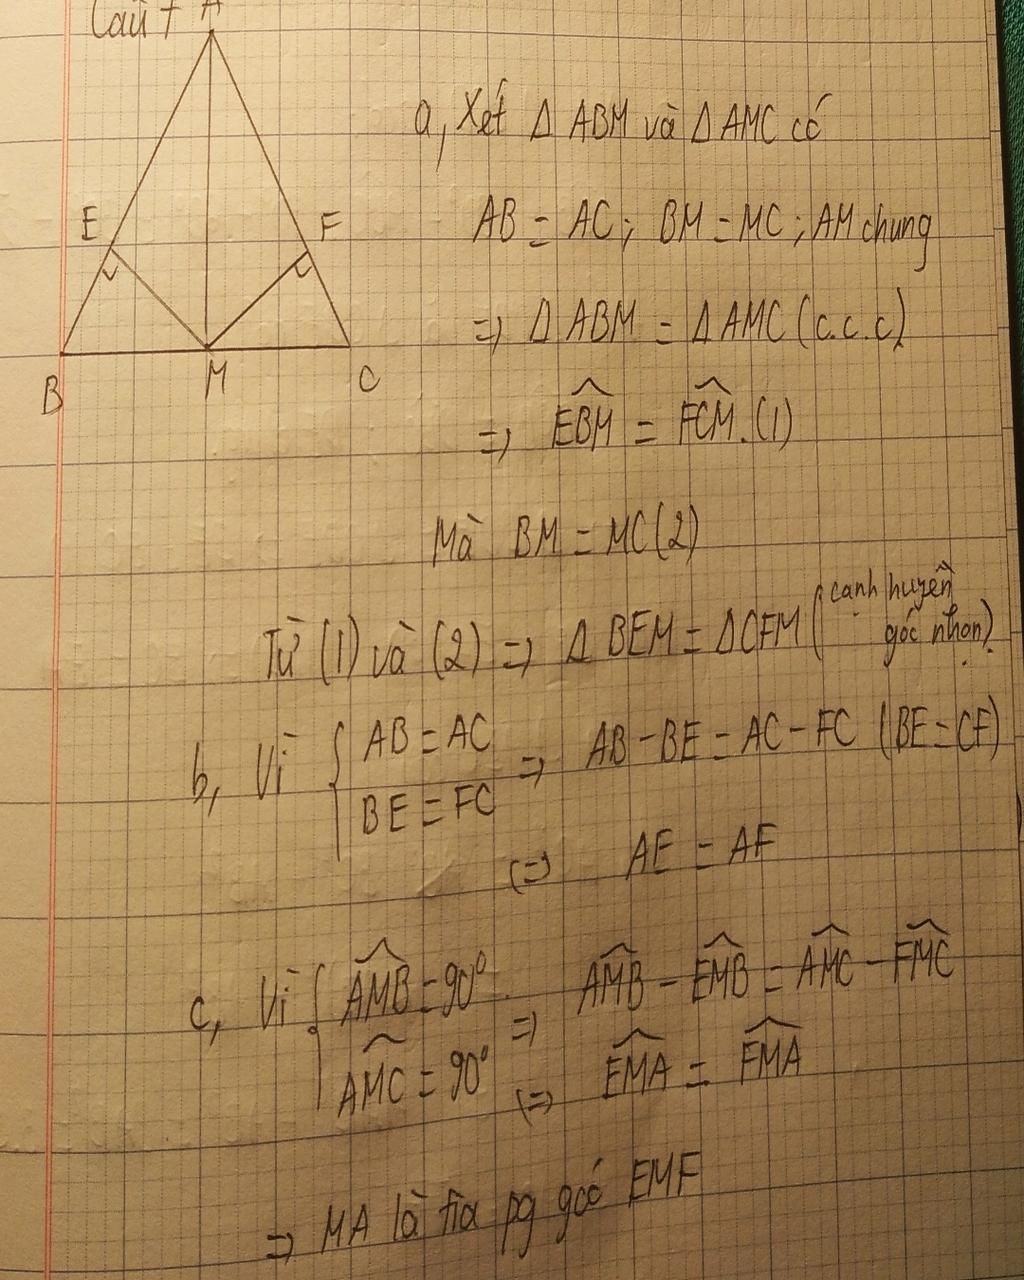 Câu 7
A
E
F
B
M
C
a, Xét Δ ABM và Δ AMC có
AB = AC; BM = MC; AM chung
=> Δ ABM = Δ AMC (c.c.c)
=> \widehat{EBM} = \widehat{FCM}. (1)
Mà BM = MC (2)
Từ (1) và (2) => Δ BEM = ΔCFM (cạnh huyền góc nhọn)
b, Vì { AB = AC => AB - BE = AC - FC (BE = CF)
BE = FC
(=) AE = AF
c, Vì { \widehat{AMB} = 90° => \widehat{AMB} - \widehat{EMB} = \widehat{AMC} - \widehat{FMC}
\widehat{AMC} = 90° (=) \widehat{EMA} = \widehat{FMA}
=> MA là tia pg góc EMF